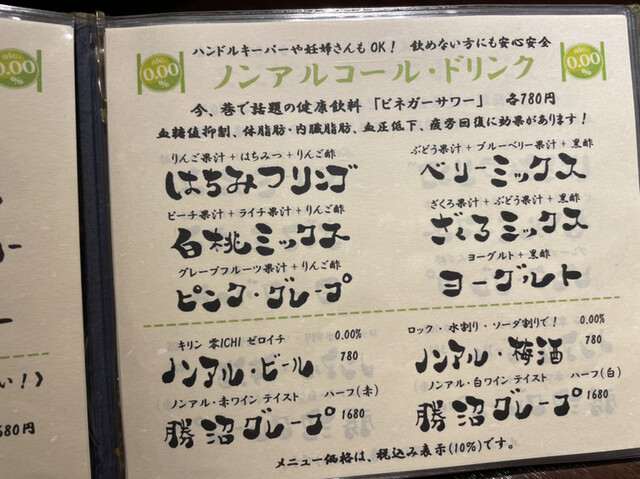 alc. 0.00%
alc. 0.00%
ハンドルキーパーや妊婦さんもOK! 飲めない方にも安心安全
ノンアルコール・ドリンク
alc. 0.00%
今、巷で話題の健康飲料「ビネガーサワー」 各780円
血糖値抑制、体脂肪・内臓脂肪、血圧低下、疲労回復に効果があります!
りんご果汁+はちみつ+りんご酢
はちみつリンゴ
ぶどう果汁+ブルーベリー果汁+黒酢
ベリーミックス
ピーチ果汁+ライチ果汁+りんご酢
白桃ミックス
ざくろ果汁+ぶどう果汁+黒酢
ざくろミックス
グレープフルーツ果汁+りんご酢
ピンク・グレープ
ヨーグルト+黒酢
ヨーグルト
キリン 零ICHI ゼロイチ 0.00%
ノンアル・ビール 780
ロック・水割り・ソーダ割りで! 0.00%
ノンアル・梅酒 780
ノンアル・赤ワインテイスト ハーフ(赤)
勝沼グレープ 1680
ノンアル・白ワインテイスト ハーフ(白)
勝沼グレープ 1680
メニュー価格は、税込み表示(10%)です。
い!〉
680円